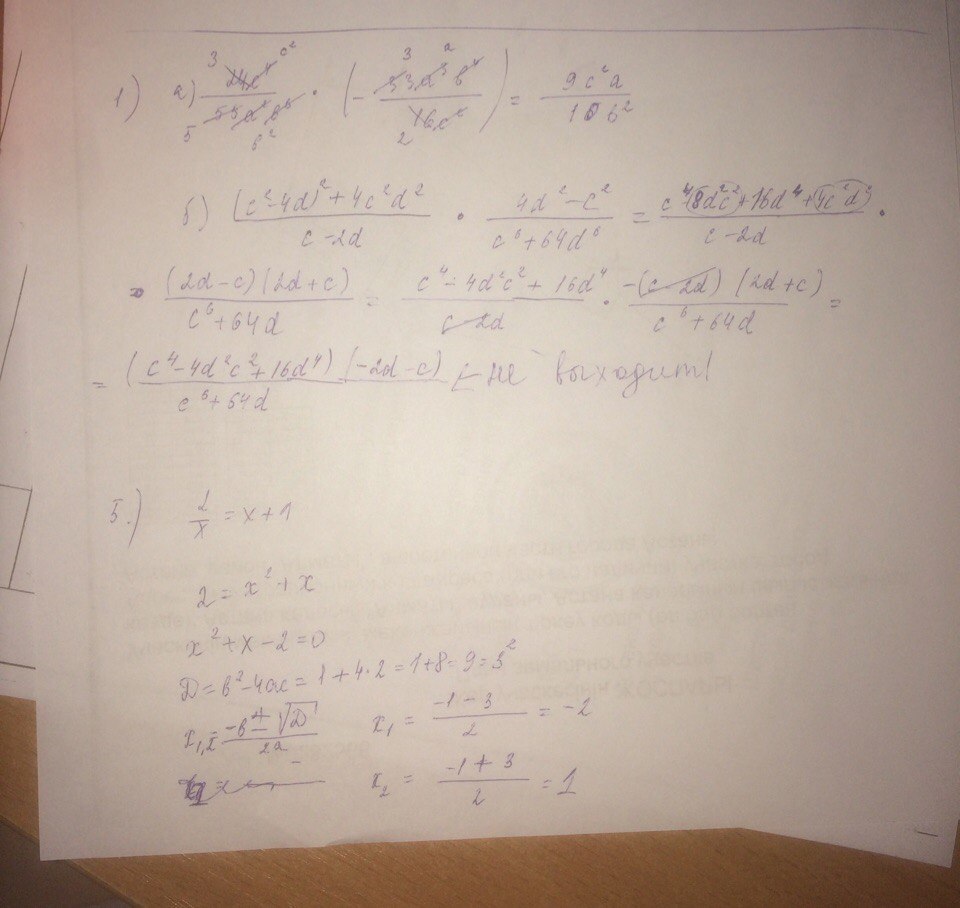 1) а) 3 24c⁴ c² / 5 55a²b⁶ b² · (- 3 33a³b⁴ a / 2 16c²) = 9c²a / 10b²
б) (c²-4d)²+4c²d² / c-2d · 4d²-c² / c⁶+64d⁶ = c⁴-8d²c²+16d⁴+4c²d² / c-2d ·
· (2d-c)(2d+c) / c⁶+64d = c⁴-4d²c²+16d⁴ / c-2d · -(c-2d)(2d+c) / c⁶+64d =
= (c⁴-4d²c²+16d⁴)(-2d-c) / c⁶+64d ← не выходит!
5.) 2/x = x+1
2 = x²+x
x²+x-2=0
D=b²-4ac=1+4·2=1+8=9=3²
x₁,₂= -b±√D / 2a x₁ = -1-3 / 2 = -2
x₂ = -1+3 / 2 = 1